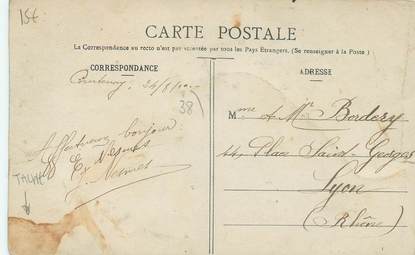 15€
CARTE POSTALE
La Correspondance au recto n'est pas acceptée par tous les Pays Étrangers. (Se renseigner à la Poste)
CORRESPONDANCE
24/8/
38
Affectueux bonjour
TACHE
ADRESSE
Mme & Mr Bordery
14, Place Saint-Georges
Lyon
(Rhône)